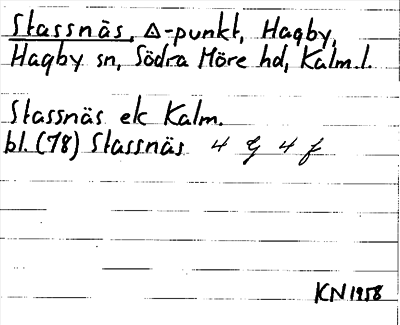 Stassnäs, Δ-punkt, Hagby,
Hagby sn, Södra Möre hd, Kalm.l.
Stassnäs ek Kalm.
bl. (78) Stassnäs 4 G 4 f
KN 1958